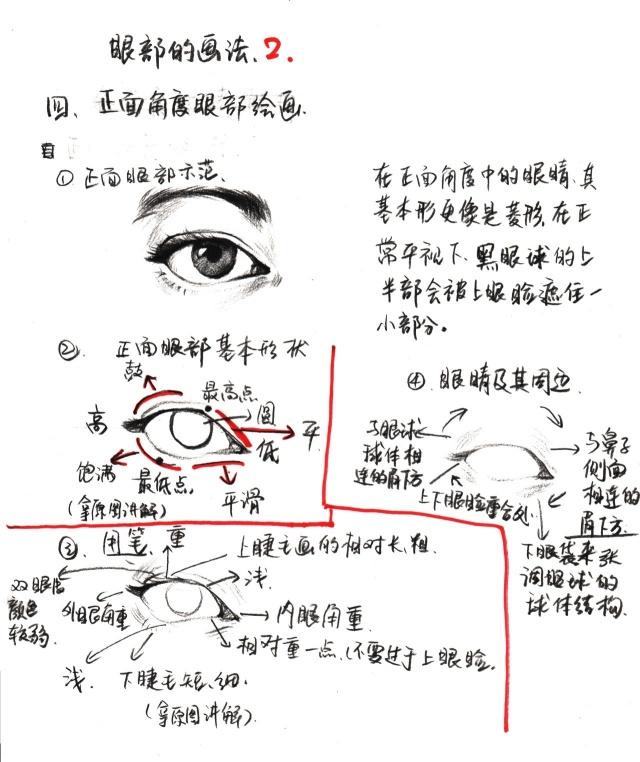 眼部的画法、2.
四、正面角度眼部绘画.
① 正面眼部示范、
在正面角度中的眼睛、其
基本形更像是菱形、在正
常平视下、黑眼球的上
半部会被上眼睑遮住一
小部分。
② 正面眼部基本形状
鼓
最高点
高
圆
平
低
饱满
最低点、
平滑
(拿原图讲解)
④ 眼睛及其周边
与眼球
球体相
连的眉下方
与鼻子
侧面
相连的
眉下方
上下眼睑重合处
下眼袋来强
调眼球的
球体结构.
③、用笔、
重
上睫毛画的相对长、粗.
浅.
双眼皮
颜色
较弱.
外眼角重
内眼角重.
相对重一点、(不要过于上眼睑。
浅.
下睫毛短、细.
(拿原图讲解).